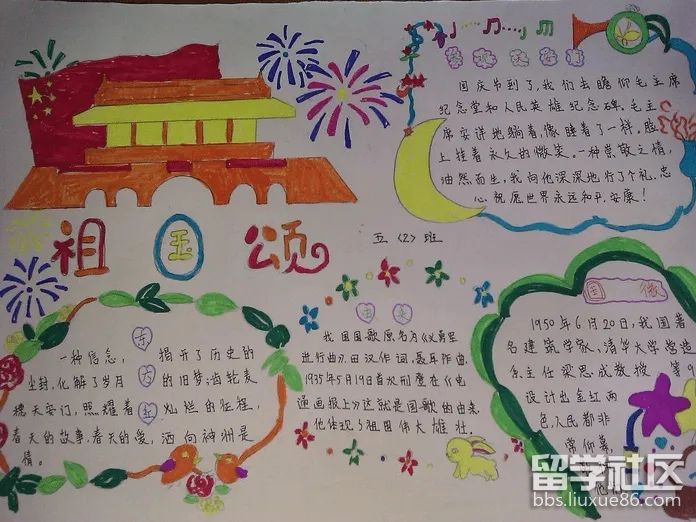 参观天安门
国庆节到了,我们去瞻仰毛主席
纪念堂和人民英雄纪念碑。毛主
席安详地躺着,像睡着了一样。脸
上挂着永久的微笑。一种崇敬之情,
油然而生,我向他深深地行了个礼,忠
心祝愿世界永远和平,安康!
祖国颂
五〈2〉班
东方红
一种信念,揭开了历史的
尘封,化解了岁月的旧梦;齿轮麦
穗天安门,照耀着灿烂的征程,
春天的故事,春天的爱,洒向神州是
情。
由来
我国国歌原名为《义勇军
进行曲》,田汉作词,聂耳作曲,
1935年5月19日首次刊廌在《电
通画报上》这就是国歌的由来,
他体现了祖国伟大雄壮.
国徽
1950年6月20日,我国著
名建筑学家、清华大学营造
系主任梁思成教授 第9
设计出金红两
色,人民都非
常仰慕,
他
留学社区
bbs.liuxue86.com